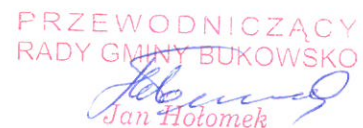 PRZEWODNICZĄCY
RADY GMINY BUKOWSKO
Jan Hołomek